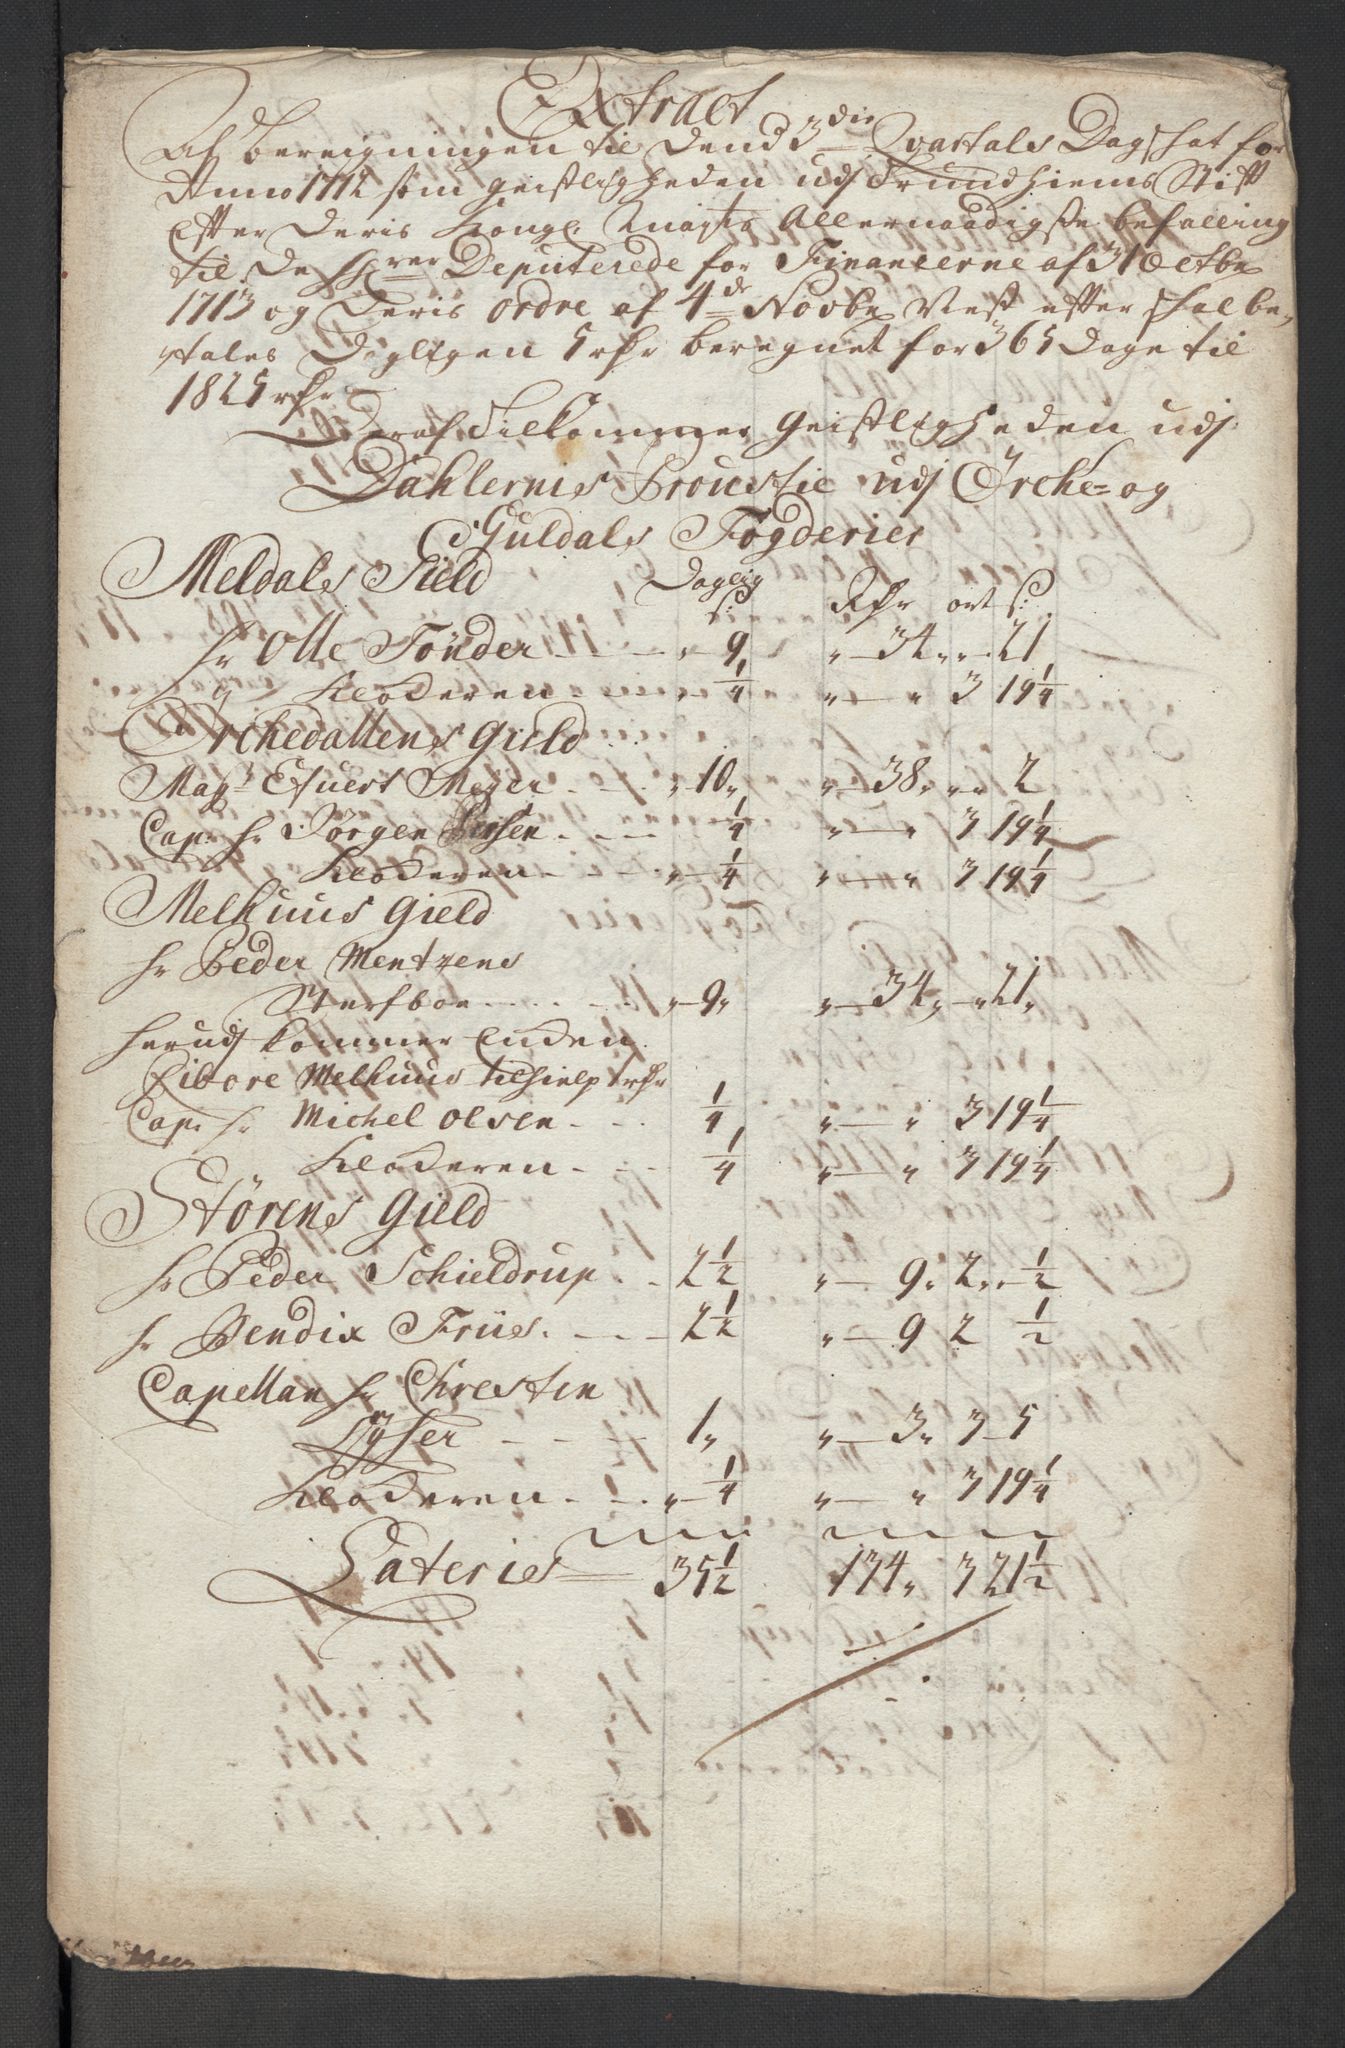 Extract
Af bereigningen til dend 3die Qvartals Dagskat for
Anno 1712 som geistligheden udj Trundhiems Stift
Efter Deris Kongl Mayts Allernaadigste befalling
til de Hrer Deputerede for Financerne af 31 Octbr
1713 og Deris ordre af 4de Novbr Nest efter skal be-
tales Dagligen 5 rdr beregnet for 365 Dage til
1825 rdr
Deraf Tilkommer Geistligheden udj
Dahlernes Proustie udj Orche- og
Guldals Fogderier
Meldals Gield Daglig
s: Rdr ort s:
hr Olle Tönder 9 " 34 " " 21
Klockeren 1/4 " " 3 19 1/4
Orchedallens gield
Magr Efuert Meyer 10 " 38 " " 2
Cap: hr Jörgen 1/4 " " 3 19 1/4
Klockeren 1/4 " " 3 19 1/4
Melhuus gield
hr Peder Mentzens
Sterfboe 9 " 34 " " 21
herudj kommer Enden
Melhuus tilhielp rdr
Cap: hr Michel Olsen 1/4 " " 3 19 1/4
Klockeren 1/4 " " 3 19 1/4
Störens gield
hr Peder Schieldrup 2 1/2 " 9 " 2 " 1/2
hr Bendix Früs 2 1/2 " 9 2 1/2
Capellan hr Chresten
Lÿster 1 " " 3 " 3 5
Klockeren 1/4 " " 3 19 1/4
Lateries 35 1/2 134 " 3 21 1/2